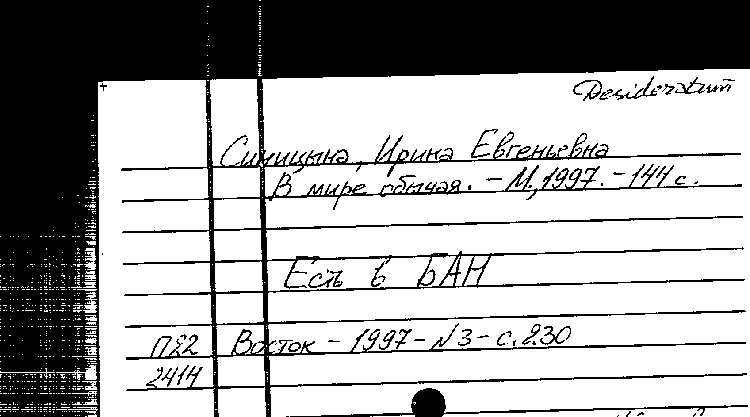 Desideratum
Синицына, Ирина Евгеньевна
В мире обычая. – М, 1997. – 144 с.
Есть в БАН
П22 Восток – 1997 – N3 – с. 230
2414